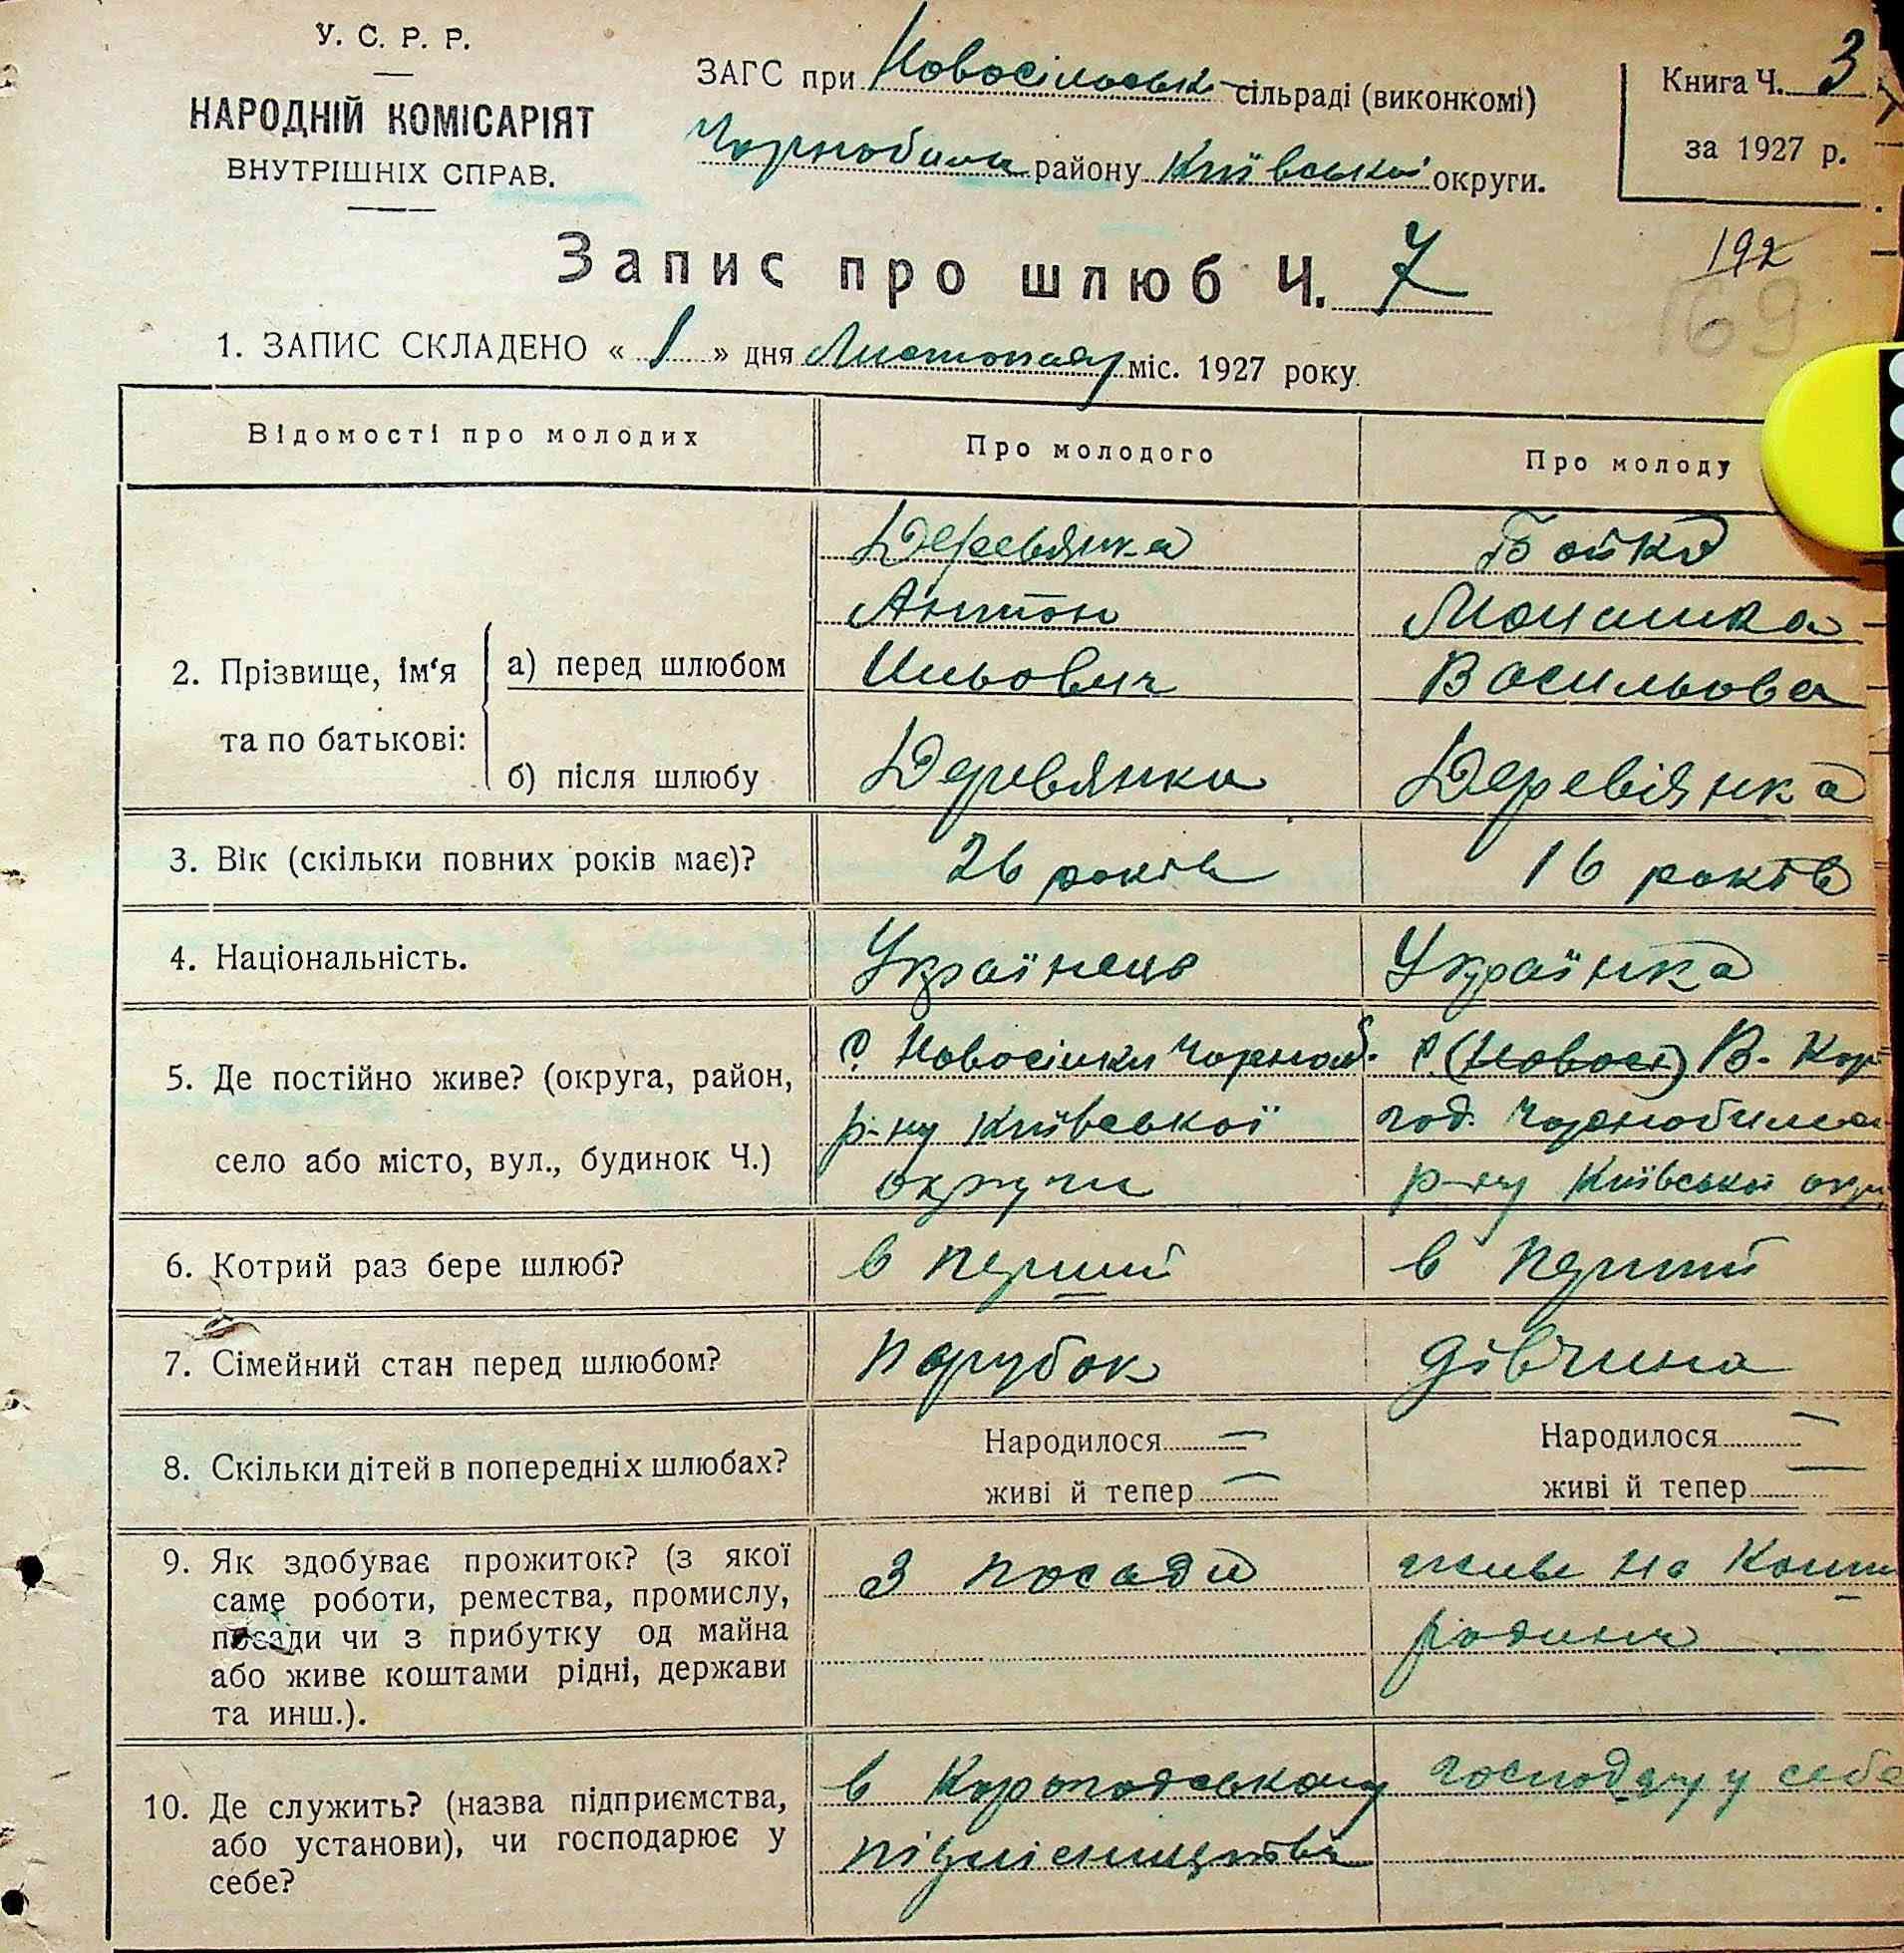 У. С. Р. Р.
НАРОДНІЙ КОМІСАРІЯТ
ВНУТРІШНІХ СПРАВ.
ЗАГС при Новосільськ сільраді (виконкомі)
Чорнобильс району Київської округи.
Книга Ч. 3
за 1927 р.
192
169
Запис про шлюб Ч. 7
1. ЗАПИС СКЛАДЕНО « 1 » дня Листопаду міс. 1927 року.
Відомості про молодих
Про молодого
Про молоду
2. Прізвище, ім‘я
та по батькові:
а) перед шлюбом
б) після шлюбу
Деревянка
Антон
Ильович
Деревянка
Бойко
Васильова
Деревіянка
3. Вік (скільки повних років має)?
26 років
16 років
4. Національність.
Українець
Українка
5. Де постійно живе? (округа, район,
село або місто, вул., будинок Ч.)
с. Новосілки Чорноб.
р-ну Київської
округи
с. (Новосі) В. Кор
год. Чорнобильс
р-ну Київської окру
6. Котрий раз бере шлюб?
в перший
в перший
7. Сімейний стан перед шлюбом?
парубок
дівчина
8. Скільки дітей в попередніх шлюбах?
Народилося —
живі й тепер —
Народилося —
живі й тепер —
9. Як здобуває прожиток? (з якої
саме роботи, ремества, промислу,
посади чи з прибутку од майна
або живе коштами рідні, держави
та инш.).
З посади
живе на кошти
родини
10. Де служить? (назва підприємства,
або установи), чи господарює у
себе?
в Корогодському
лісництві
господарує у себе